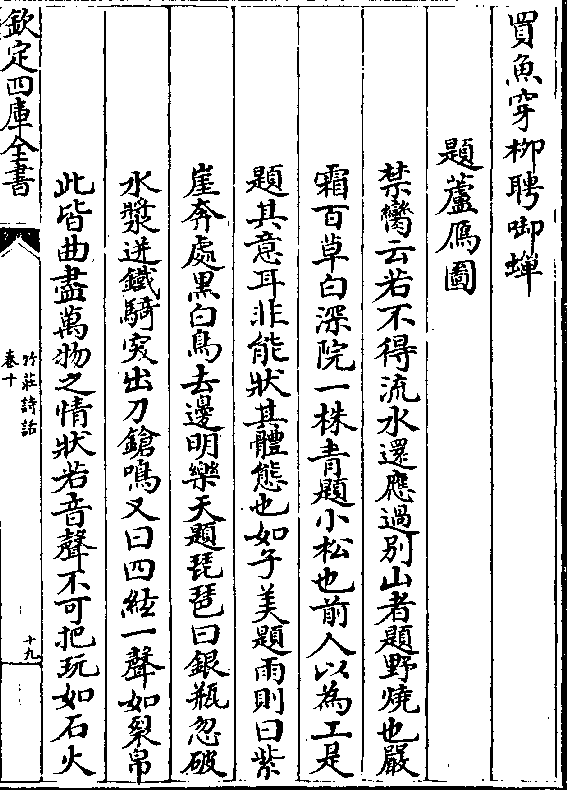 買魚穿栁聘啣蟬
題蘆鴈圖
禁臠云若不得流水還應過别山者題野燒也嚴
霜百草白深院一株青題小松也前人以為工是
題其意耳非能狀其體態也如子美題雨則曰紫
崖奔處黑白鳥去邊明樂天題琵琶曰銀瓶忽破
水漿迸鐵騎突出刀鎗鳴又曰四絃一聲如裂帛
此皆曲盡萬物之情狀若音聲不可把玩如石火
欽定四庫全書
竹莊詩話
卷十
十九